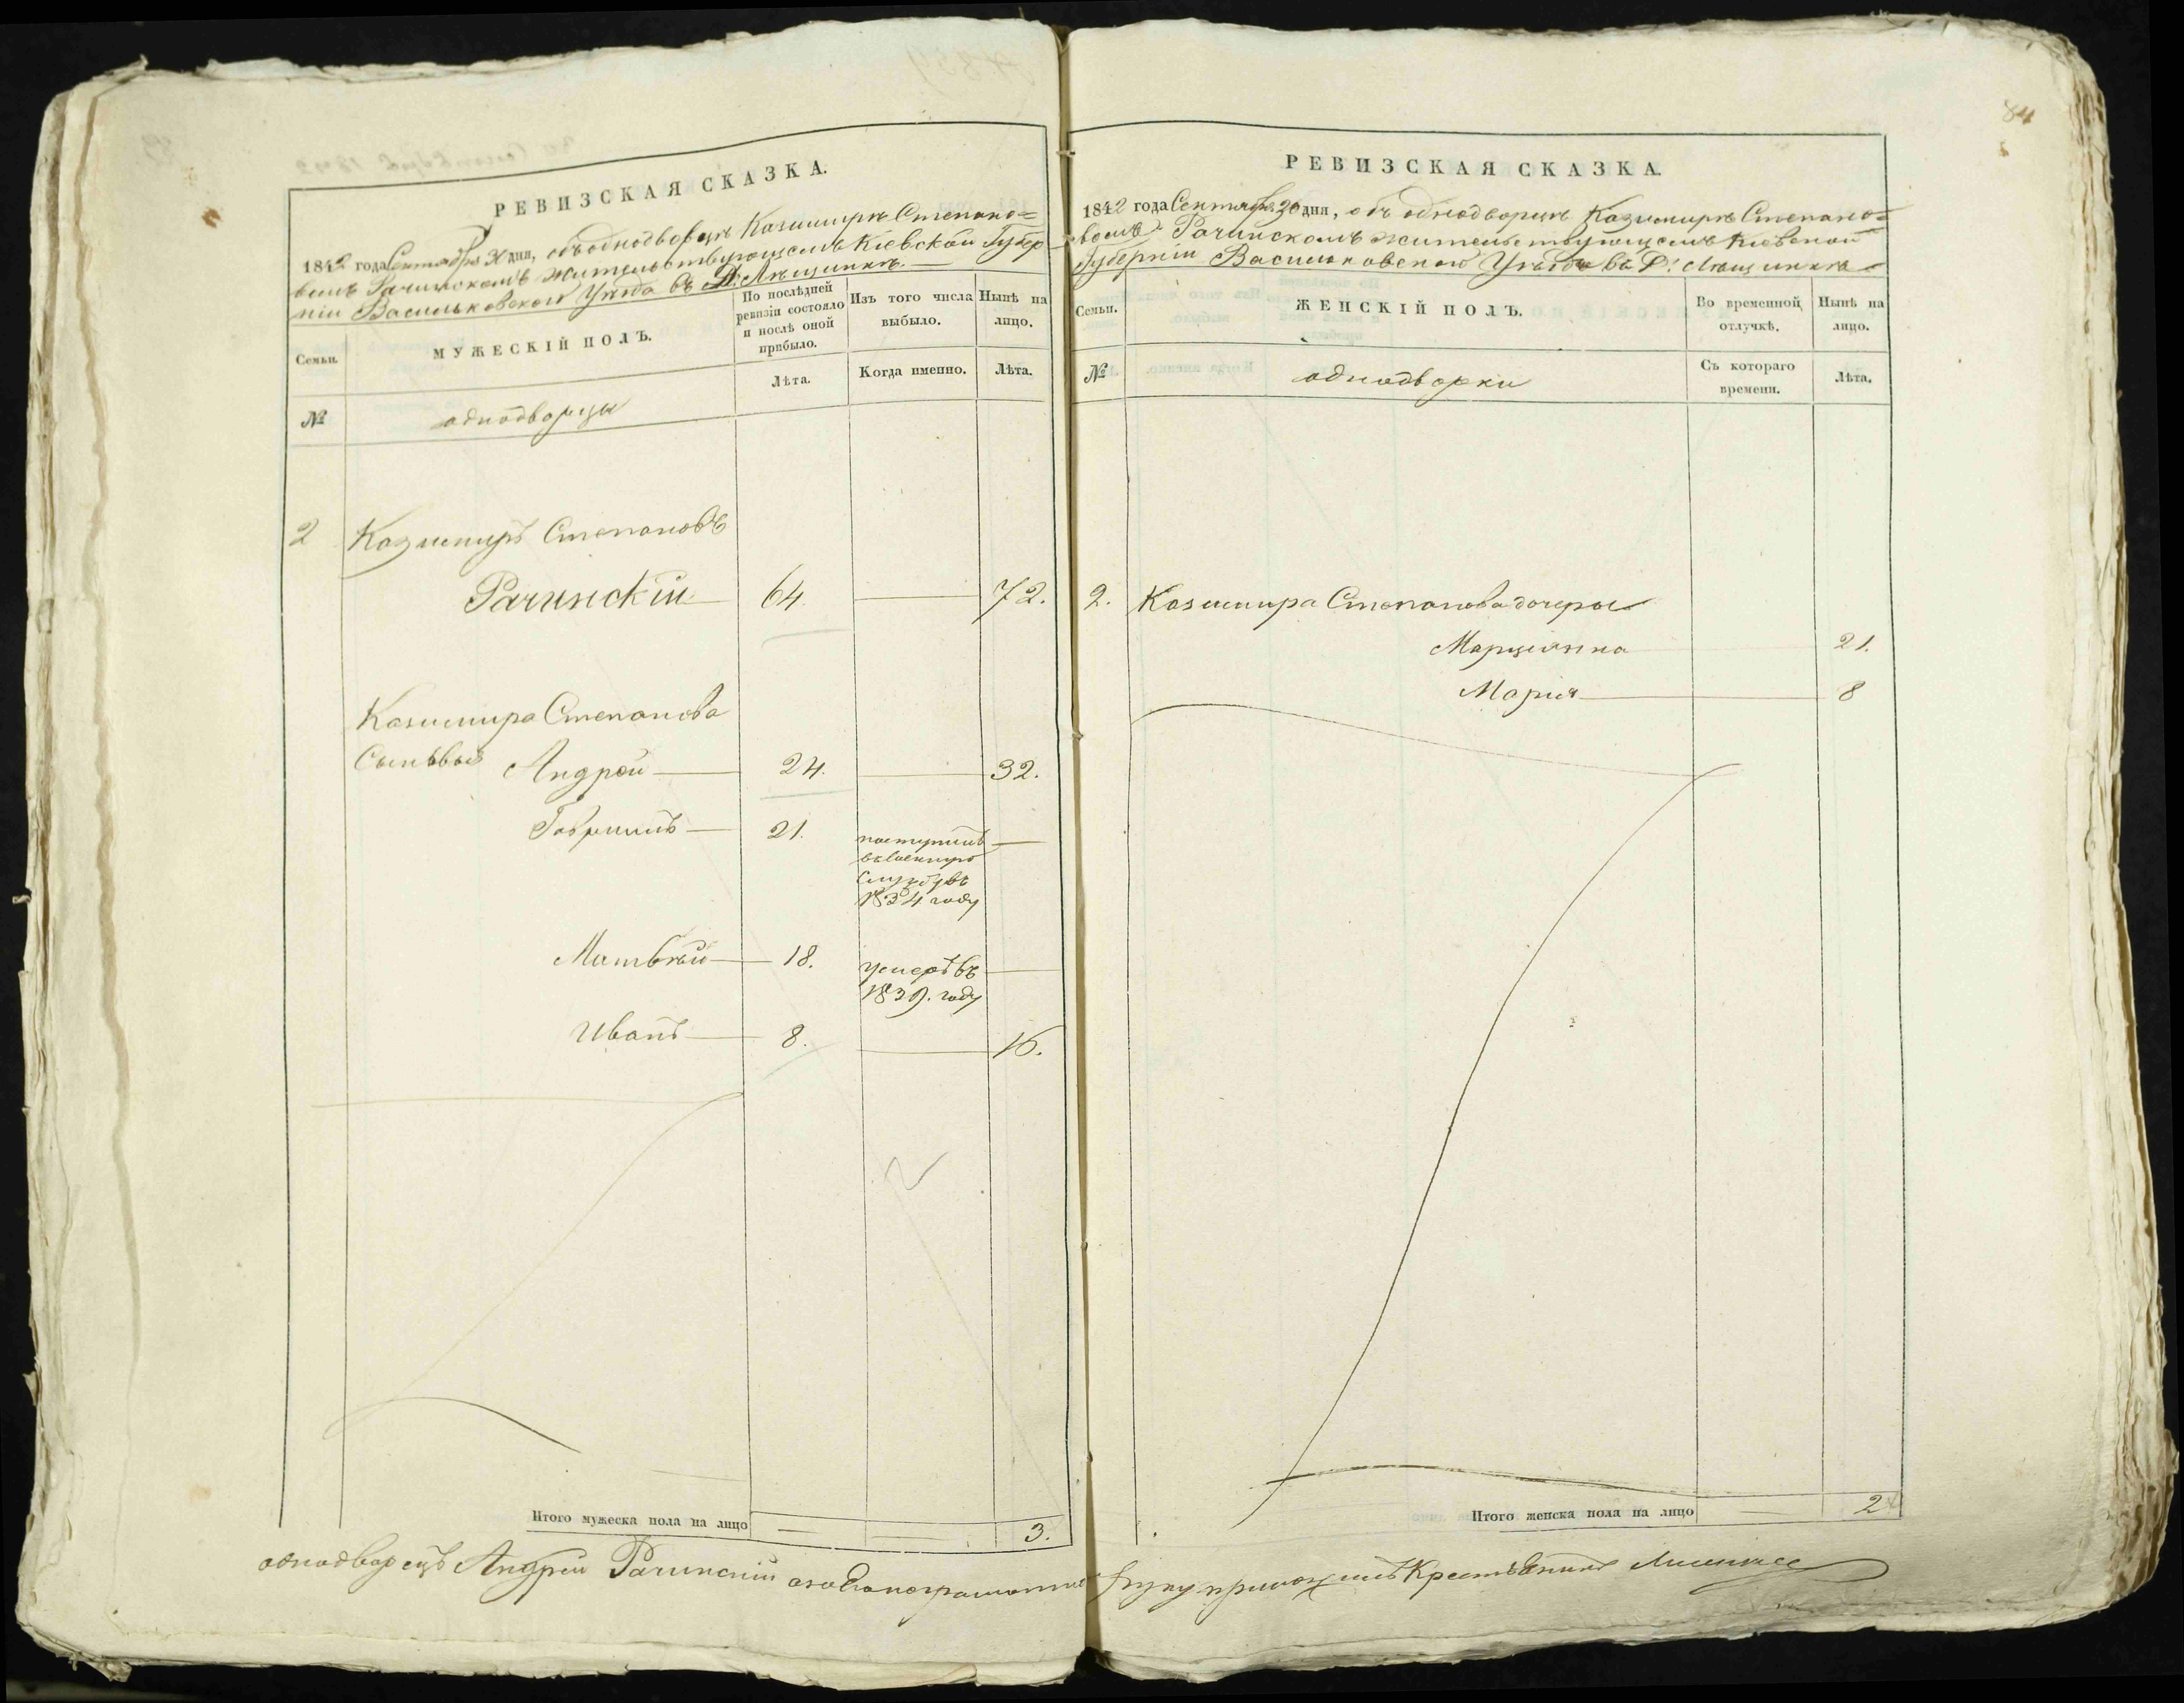 РЕВИЗСКАЯ СКАЗКА.
1842 года Сентября 30 дня, объ однодворцѣ Казимирѣ Степано=
вомъ Рачинскомъ жительствующемъ Кіевской Губер
ніи Васильковскаго Уѣзда въ Д. Лѣщинкѣ.
Семьи.
МУЖЕСКІЙ ПОЛЪ.
По послѣдней ревизіи состояло и послѣ оной прибыло.
Изъ того числа выбыло.
Нынѣ на лицо.
№
однодворцы
Лѣта.
Когда именно.
Лѣта.
2 Казимиръ Степановъ
Рачинскій 64. 72.
Казимира Степанова
Сыновья Андрей 24. 32.
Гаврыилъ 21. поступилъ
въ военную
службу въ
1834 году
Матвѣй 18. умеръ въ
1839. году
Иванъ 8. 16.
Итого мужеска пола на лицо 3.
84
РЕВИЗСКАЯ СКАЗКА.
1842 года Сентября 30 дня, объ однодворцѣ Казимирѣ Степано=
вомъ Рачинскомъ жительствующемъ Кіевской
Губерніи Васильковскаго Уѣзда въ Д. Лѣщинкѣ
Семьи.
ЖЕНСКІЙ ПОЛЪ.
Во временной отлучкѣ.
Нынѣ на лицо.
№
однодворки
Съ котораго времени.
Лѣта.
2. Казимира Степанова дочеры
Марцелянна 21.
Марія 8
Итого женска пола на лицо 2
однодворецъ Андрей Рачинскій а за него неграмотнаго руку приложилъ Крестьянинъ